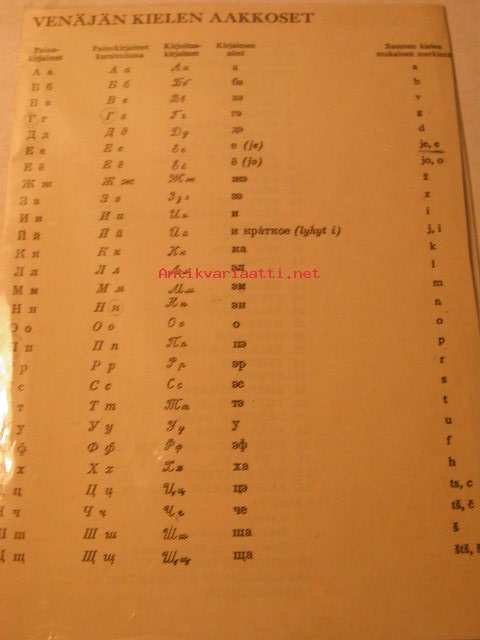 VENÄJÄN KIELEN AAKKOSET
Paino- Painokirjaimet Kirjoitus- Kirjaimen Suomen kielen
kirjaimet kursivoituna kirjaimet nimi mukainen merkintä
А а А а А а а a
Б б Б б Б б бэ b
В в В в В в вэ v
Г г Г г Г г гэ g
Д д Д д Д д дэ d
Е е Е е Е е е (je) je, e
Ё ё Ё ё Ё ё ё (jo) jo, o
Ж ж Ж ж Ж ж жэ ž
З з З з З з зэ z
И и И и И и и i
Й й Й й Й й и краткое (lyhyt i) j, i
К к К к К к ка k
Л л Л л Л л эл l
Antikvariaatti.net
М м М м М м эм m
Н н Н н Н н эн n
О о О о О о о o
П п П п П п пэ p
р Р р Р р эр r
с С с С с эс s
т Т т Т т тэ t
у У у У у у u
Ф ф Ф ф Ф ф эф f
х Х х Х х ха h
ц Ц ц Ц ц цэ ts, c
Ч ч Ч ч Ч ч че tš, č
Ш ш Ш ш Ш ш ша š
Щ щ Щ щ Щ щ ща štš,